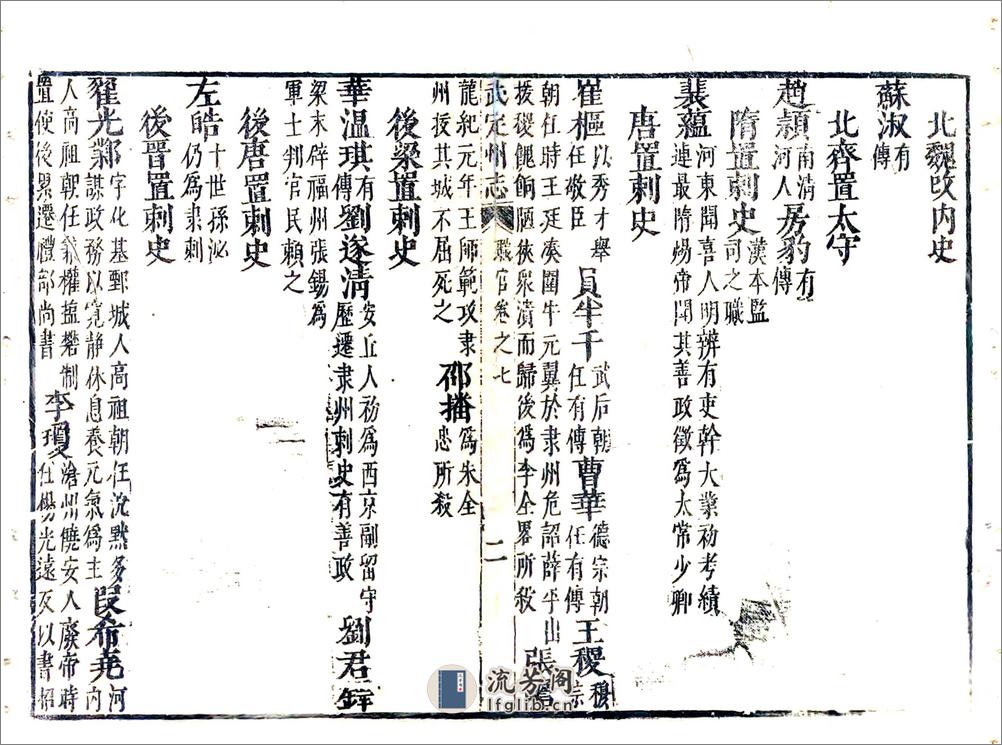 北魏改內史
蘇淑有傳
北齊置太守
趙頴南清河人房豹有傳
隋置刺史漢本監司之職
裴蘊河東聞喜人明辨有吏幹大業初考績連最隋煬帝聞其善政徵為太常少卿
唐置刺史
崔樞以秀才舉任敬臣員半千武后朝任有傳曹華德宗朝任有傳王稷穆宗
朝任時王廷湊圍牛元翼於隶州危詔薛平出援稷餽餉陋狹衆潰而歸後為李全畧所殺張
武定州志 職官卷之七 二
龍紀元年王師範攻隶州拔其城不屈死之邵播為朱全忠所殺
後梁置刺史
華温琪有傳劉遂清安丘人初為西京副留守歷遷隶州刺史有善政劉君鐸
梁末辟福州張錫為軍士判官民賴之
後唐置刺史
左皓十世孫泌仍為隶刺
後晉置刺史
翟光鄴字化基鄄城人高祖朝任沉默多謀政務以寛静休息養元氣為主段希堯河內
人高祖朝任權制置使後累遷禮部尚書李瓊滄州饒安人廢帝時任楊光遠反以書招
流芳阁
lfglib.cn